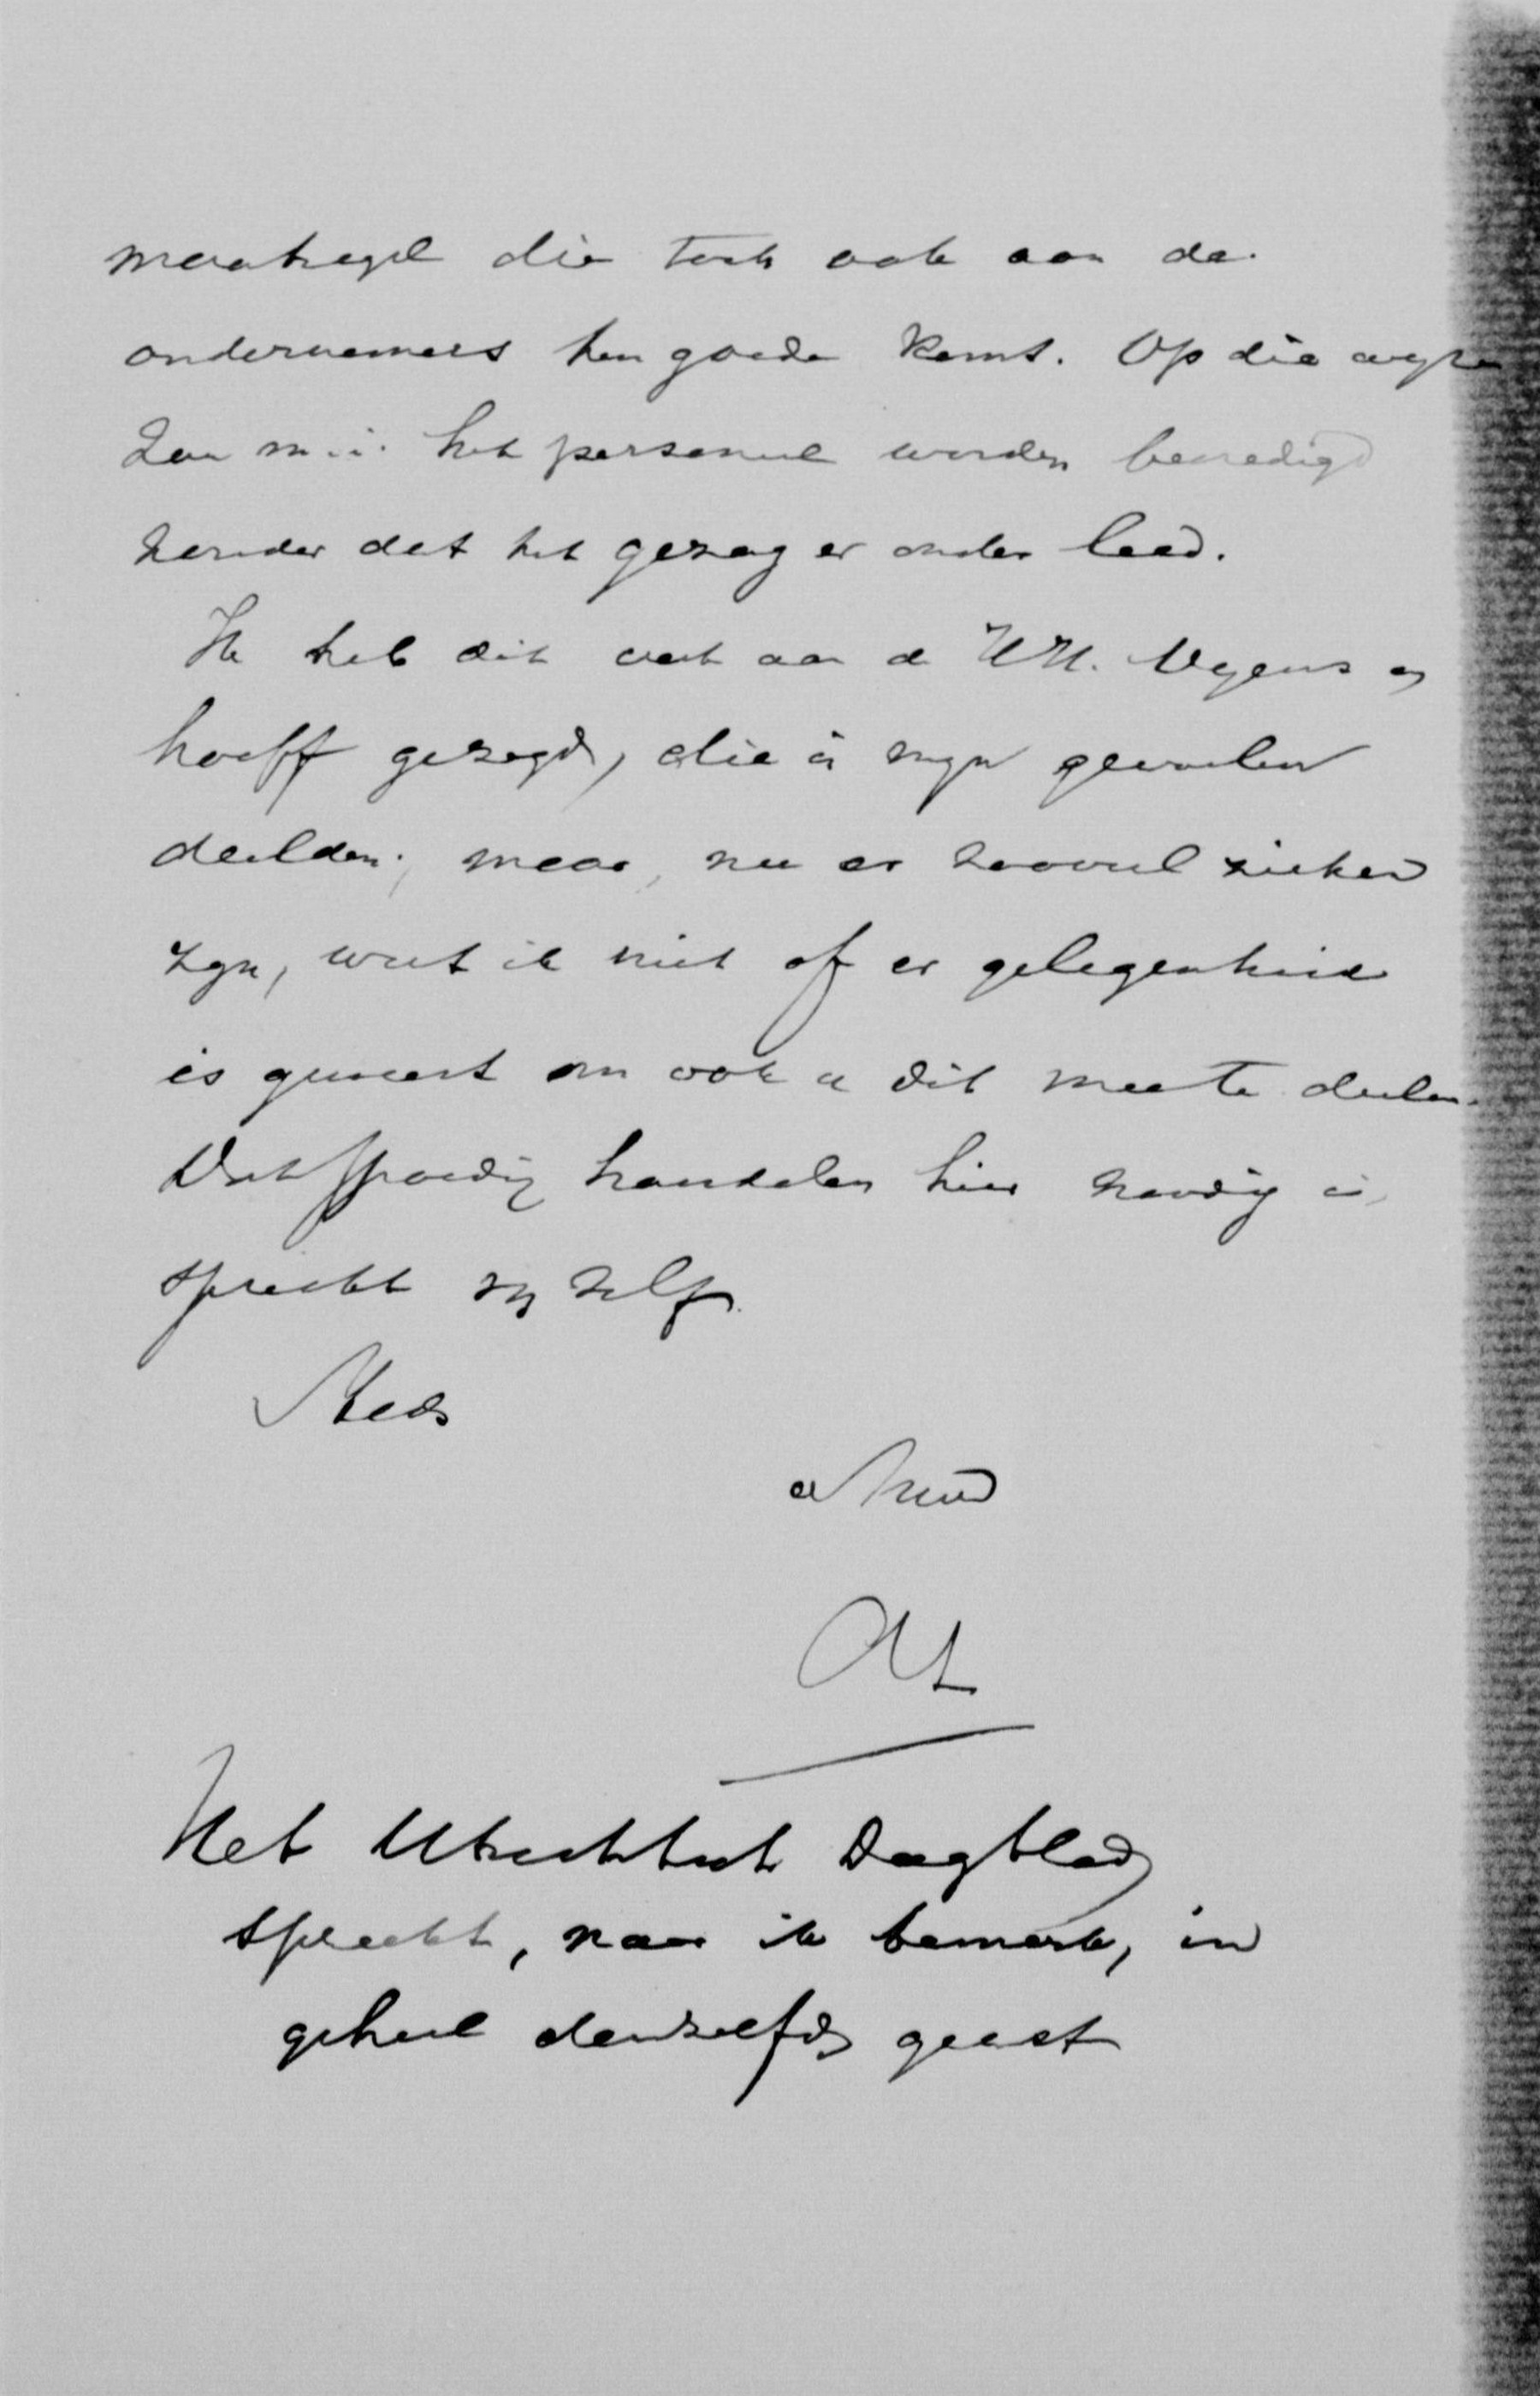 maatregel die toch ook aan de
ondernemers ten goede komt. Op die wijze
zou m.i. het personeel worden bevredigd
zonder dat het gezag er onder leed.
Ik heb dit ook aan de HH. en
hoeff gezegd, die in mijn gevoelen
deelden; maar, nu er zooveel zieken
zijn, weet ik niet of er gelegenheid
is geweest om ook u dit mee te deelen.
Dat spoedig handelen hier noodig is,
spreekt van zelf.
Steeds
uw
Het Utrechtsch Dagblad
spreekt, naar ik bemerk, in
geheel denzelfden geest